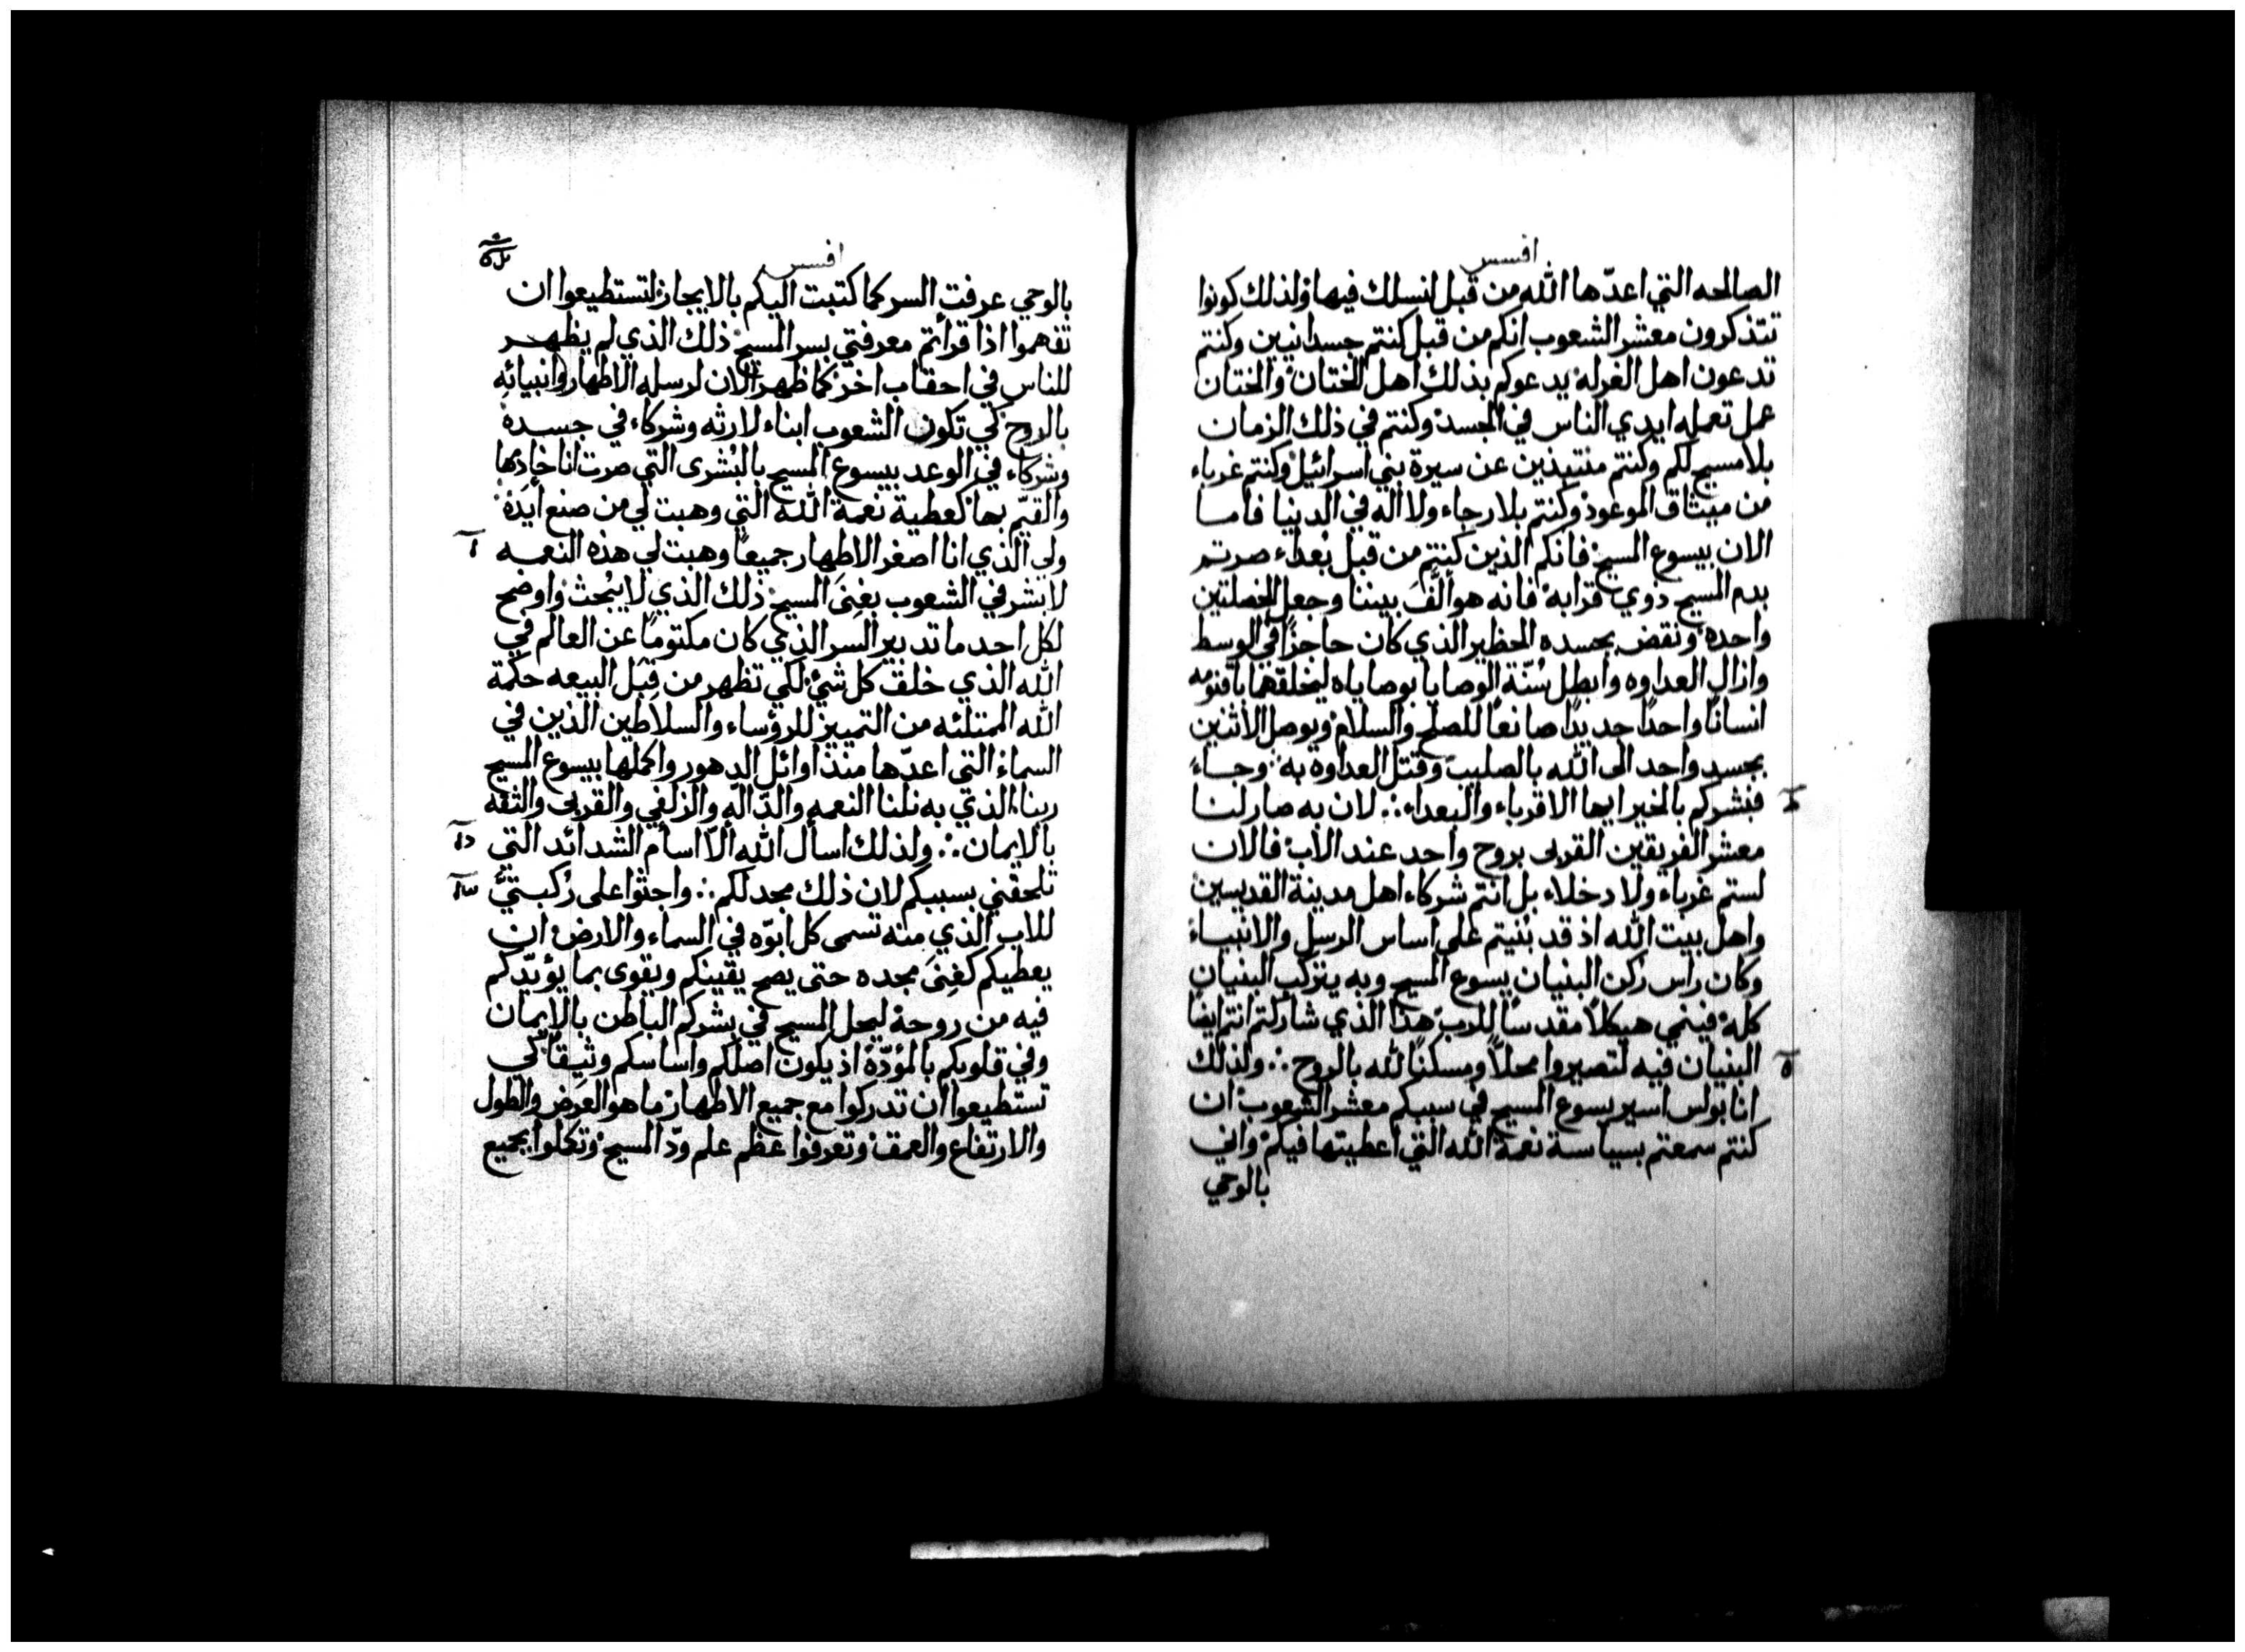 افسس
الصالحه التي اعدّها الله من قبل لنسلك فيها ولذلك كونوا
تتذكرون معشر الشعوب انكم من قبل كنتم جسدانيين وكنتم
تدعون اهل الغرله يدعوكم بذلك اهل الختان والختان
عمل تعمله ايدي الناس في الجسد وكنتم في ذلك الزمان
بلا مسيح لكم وكنتم منتبذين عن سيرة بني اسرائيل وكنتم غرباء
من ميثاق الموعود وكنتم بلا رجاء ولا اله في الدنيا فاما
الان بيسوع المسيح فانكم الذين كنتم من قبل بُعداء صرتم
بدم المسيح ذوي قرابه فانه هو الَّفَ بيننا وجعل الخصلتين
واحده ونقض بجسده الحظير الذي كان حاجزًا في الوسط
وازال العداوه وابطل سُنّة الوصايا بوصاياه ليخلقهما باقنومه
انسانًا واحدًا جديدًا صانعًا للصلح والسلام ويوصل الاثنين
بجسد واحد الى الله بالصليب وقتل العداوه به وجاء
فبشركم بالخير ايها الاقرباء والبعداء ∴ لان به صار لنا
معشر الفريقين القربى بروح واحد عند الاب فالان
لستم غرباء ولا دخلاء بل انتم شركاء اهل مدينة القديسين
واهل بيت الله اذ قد بُنيتم على اساس الرسل والانبياء
وكان راس ركن البنيان يسوع المسيح وبه يتركب البنيان
كله فينمي هيكلاً مقدسًا للرب هذا الذي شاركتم انتم ايضًا
البنيان فيه لتصيروا محلاً ومسكنًا لله بالروح ∴ ولذلك
انا بولس اسير يسوع المسيح في سببكم معشر الشعوب ان
كنتم سمعتم بسياسة نعمة الله التي اعطيتها فيكم واني
بالوحي
افسس
بالوحي عرفت السر كما كتبت اليكم بالايجاز لتستطيعوا ان
تفهموا اذا قرأتم معرفتي بسر المسيح ذلك الذي لم يظهر
للناس في احقاب اخر كما ظهر الان لرسله الاطهار وانبيائه
بالروح كي تكون الشعوب ابناء لارثه وشركاء في جسده
وشركاء في الوعد بيسوع المسيح بالبُشرى التي صرت انا خادمها
والقيّم بها كعطية نعمة الله التي وهبت لي من صنع أيَده
ولي الذي انا اصغر الاطهار جميعًا وهبت لي هذه النعمه
لابشر في الشعوب بغِنَى المسيح ذلك الذي لا يبُحث واوضح
لكل احد ما تدبير السر الذي كان مكتومًا عن العالم في
الله الذي خلق كل شئ لكي تظهر من قِبَل البيعه حكمة
الله الممتلئه من التمييز للرؤساء والسلاطين الذين في
السماء التي اعدّها منذ اوائل الدهور واكملها بيسوع المسيح
ربنا الذي به نلنا النعمه والدّالّه والزلفي والقربى والثقه
بالايمان ∴ ولذلك اسأل الله ألاّ اسأم الشدائد التي
تلحقني بسببكم لان ذلك مجد لكم ∴ واجثوا على رُكبتيَّ
للاب الذي منه تسمى كل ابوّه في السماء والارض ان
يعطيكم كغِنَى مجده حتى يصح يقينكم ويقوى بما يؤيّدكم
فيه من روحه ليحل المسيح في بشركم الباطن بالايمان
وفي قلوبكم بالمؤدّة اذ يكون اصلكم واساسكم وثيقًا كي
تستطيعوا ان تدركوا مع جميع الاطهار ما هو العرض والطول
والارتفاع والعمق وتعرفوا عظم علم ودّ المسيح وتكملوا بجميع